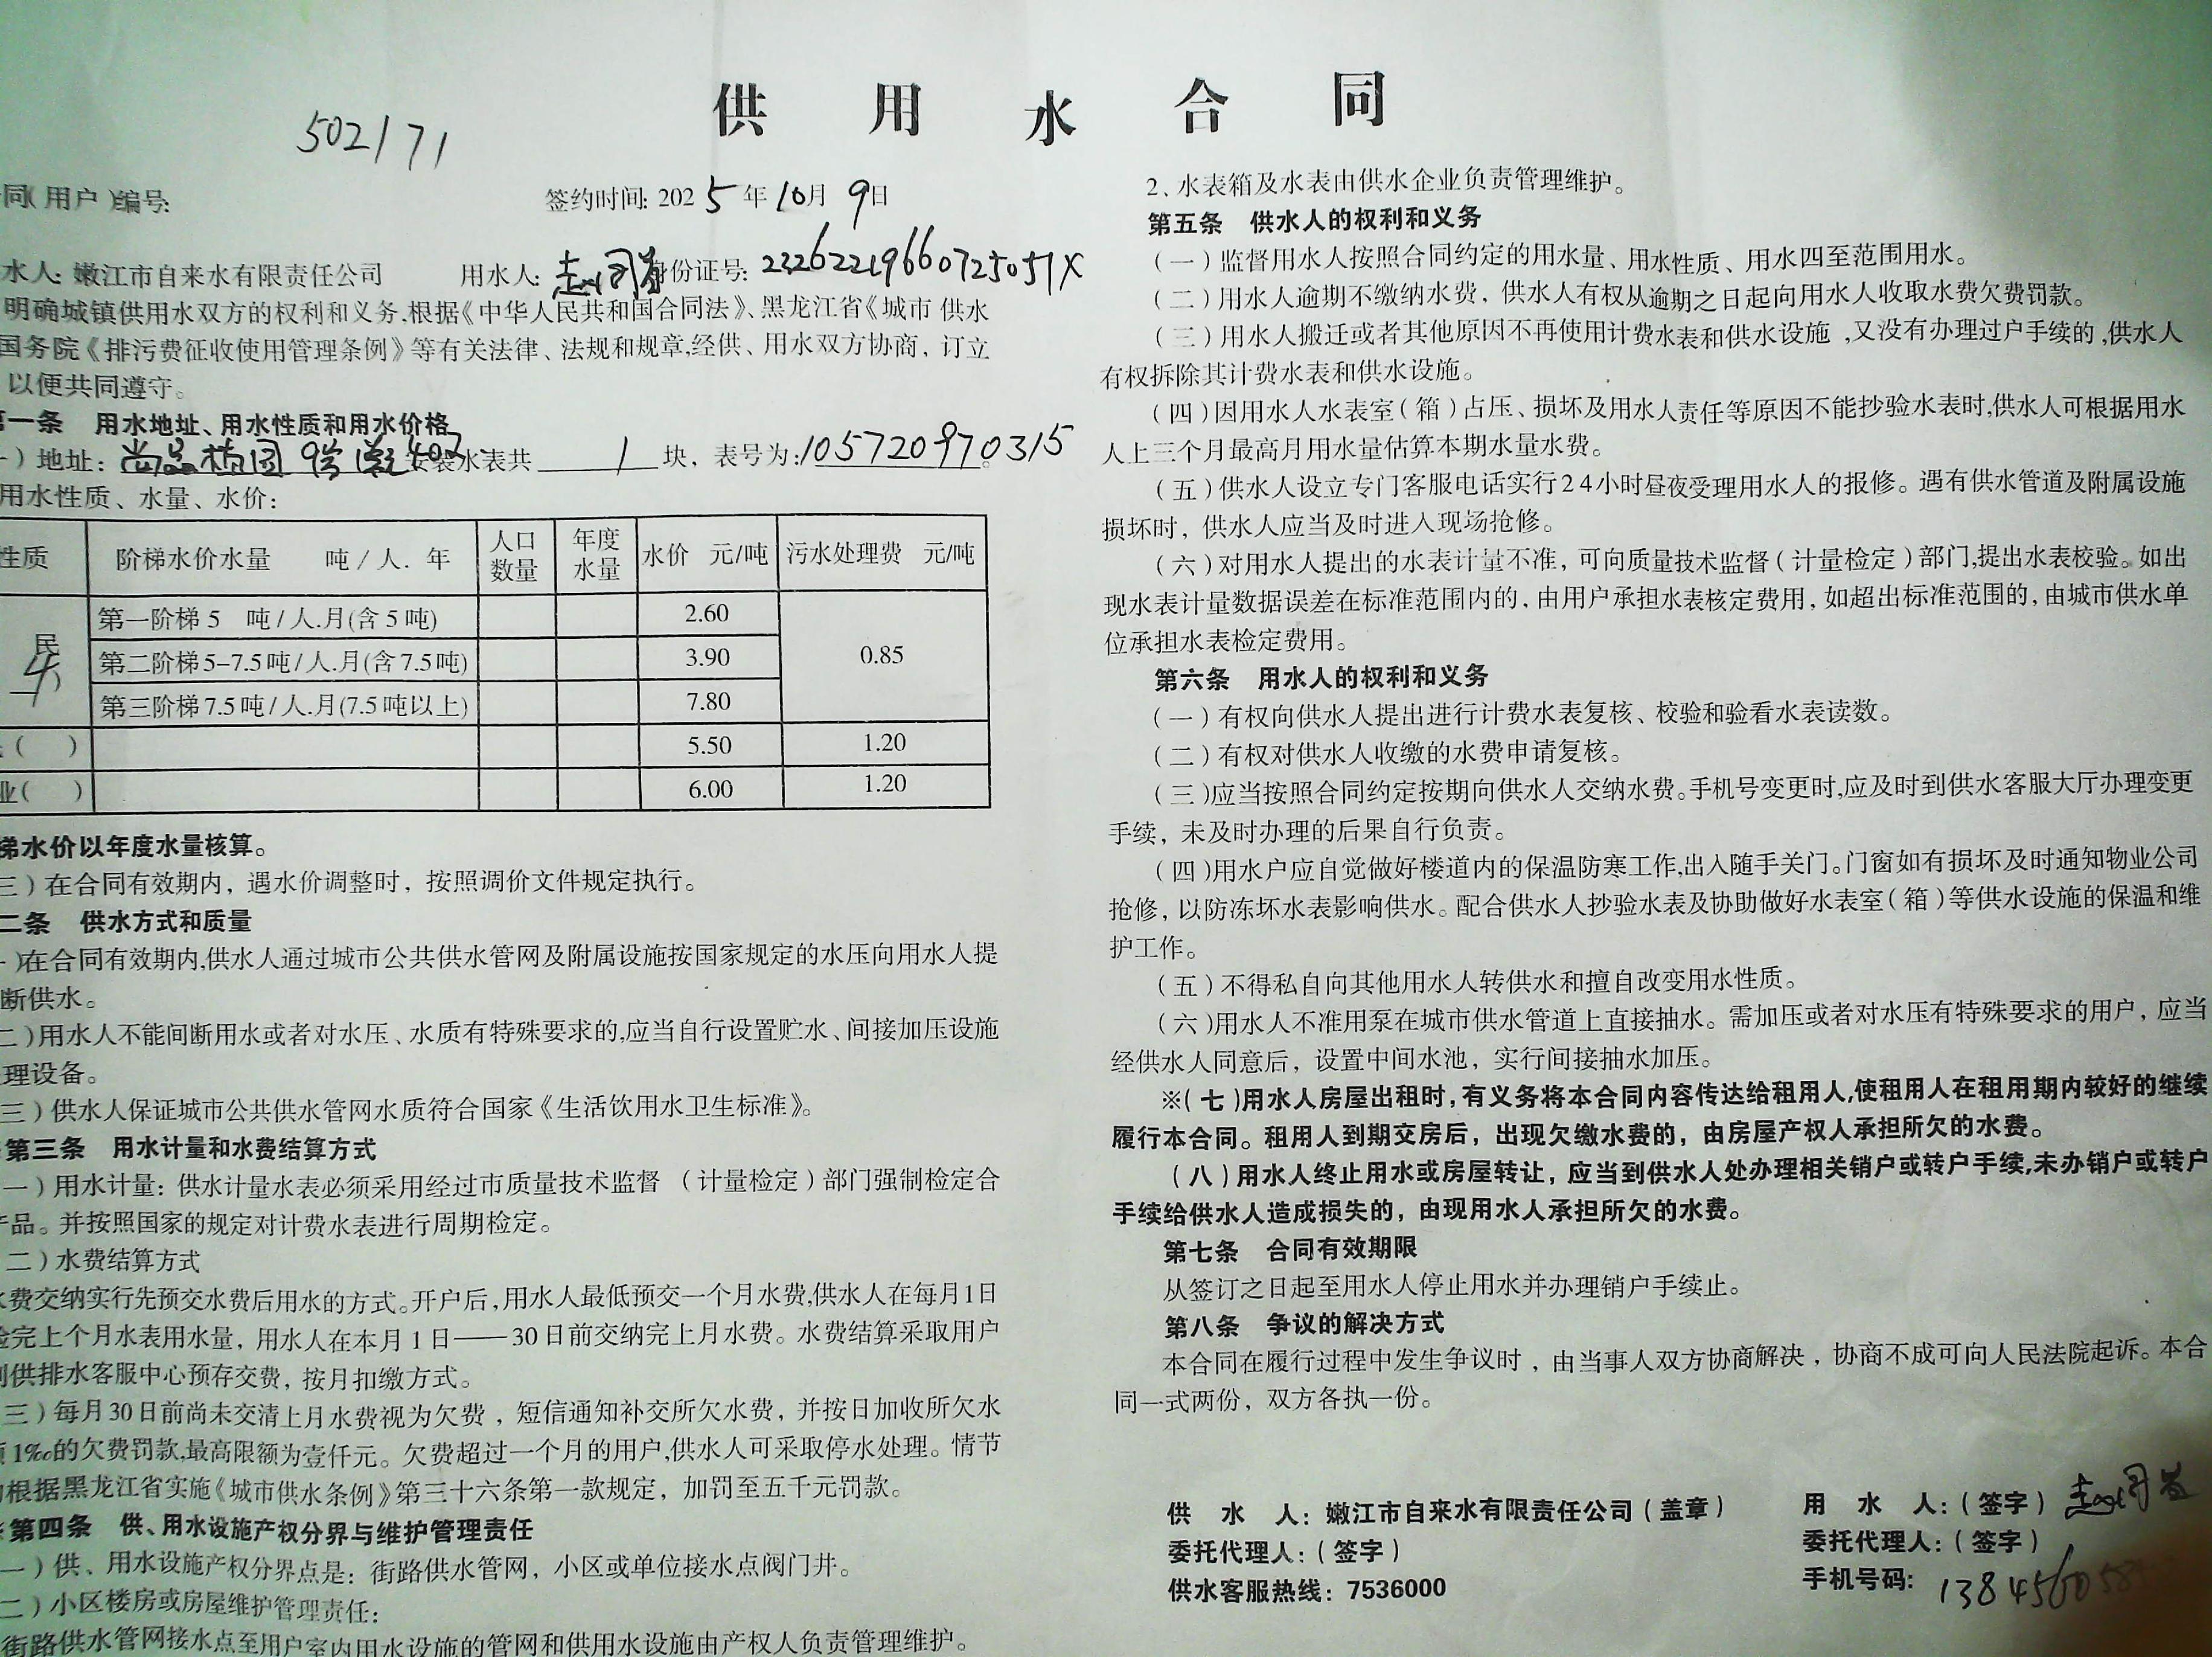 供用水合同
502171
同(用户)编号:
签约时间: 2025年10月9日
水人: 嫩江市自来水有限责任公司 用水人: 份证号: 23262219660725051X
明确城镇供用水双方的权利和义务.根据《中华人民共和国合同法》、黑龙江省《城市 供水
国务院《排污费征收使用管理条例》等有关法律、法规和规章,经供、用水双方协商，订立
以便共同遵守。
第一条 用水地址、用水性质和用水价格
)地址: 尚品 园 9 402 安装水表共 1 块，表号为: 105720970315
用水性质、水量、水价:
性质 阶梯水价水量 吨/人. 年 人口数量 年度水量 水价 元/吨 污水处理费 元/吨
民
第一阶梯 5 吨/人.月(含5吨) 2.60 0.85
第二阶梯 5-7.5吨/人.月(含7.5吨) 3.90
第三阶梯 7.5吨/人.月(7.5吨以上) 7.80
( ) 5.50 1.20
业( ) 6.00 1.20
梯水价以年度水量核算。
三)在合同有效期内，遇水价调整时，按照调价文件规定执行。
二条 供水方式和质量
)在合同有效期内,供水人通过城市公共供水管网及附属设施按国家规定的水压向用水人提
断供水。
二)用水人不能间断用水或者对水压、水质有特殊要求的,应当自行设置贮水、间接加压设施
理设备。
三)供水人保证城市公共供水管网水质符合国家《生活饮用水卫生标准》。
第三条 用水计量和水费结算方式
一)用水计量: 供水计量水表必须采用经过市质量技术监督 (计量检定)部门强制检定合
产品。并按照国家的规定对计费水表进行周期检定。
二)水费结算方式
水费交纳实行先预交水费后用水的方式。开户后,用水人最低预交一个月水费,供水人在每月1日
验完上个月水表用水量，用水人在本月1日——30日前交纳完上月水费。水费结算采取用户
到供排水客服中心预存交费，按月扣缴方式。
三)每月30日前尚未交清上月水费视为欠费，短信通知补交所欠水费，并按日加收所欠水
1‰的欠费罚款,最高限额为壹仟元。欠费超过一个月的用户,供水人可采取停水处理。情节
根据黑龙江省实施《城市供水条例》第三十六条第一款规定，加罚至五千元罚款。
第四条 供、用水设施产权分界与维护管理责任
一)供、用水设施产权分界点是: 街路供水管网，小区或单位接水点阀门井。
二)小区楼房或房屋维护管理责任:
街路供水管网接水点至用户室内用水设施的管网和供用水设施由产权人负责管理维护。
2、水表箱及水表由供水企业负责管理维护。
第五条 供水人的权利和义务
(一)监督用水人按照合同约定的用水量、用水性质、用水四至范围用水。
(二)用水人逾期不缴纳水费，供水人有权从逾期之日起向用水人收取水费欠费罚款。
(三)用水人搬迁或者其他原因不再使用计费水表和供水设施,又没有办理过户手续的,供水人
有权拆除其计费水表和供水设施。
(四)因用水人水表室(箱)占压、损坏及用水人责任等原因不能抄验水表时,供水人可根据用水
人上三个月最高月用水量估算本期水量水费。
(五)供水人设立专门客服电话实行24小时昼夜受理用水人的报修。遇有供水管道及附属设施
损坏时，供水人应当及时进入现场抢修。
(六)对用水人提出的水表计量不准，可向质量技术监督(计量检定)部门,提出水表校验。如出
现水表计量数据误差在标准范围内的，由用户承担水表核定费用，如超出标准范围的，由城市供水单
位承担水表检定费用。
第六条 用水人的权利和义务
(一)有权向供水人提出进行计费水表复核、校验和验看水表读数。
(二)有权对供水人收缴的水费申请复核。
(三)应当按照合同约定按期向供水人交纳水费。手机号变更时,应及时到供水客服大厅办理变更
手续，未及时办理的后果自行负责。
(四)用水户应自觉做好楼道内的保温防寒工作,出入随手关门。门窗如有损坏及时通知物业公司
抢修，以防冻坏水表影响供水。配合供水人抄验水表及协助做好水表室(箱)等供水设施的保温和维
护工作。
(五)不得私自向其他用水人转供水和擅自改变用水性质。
(六)用水人不准用泵在城市供水管道上直接抽水。需加压或者对水压有特殊要求的用户，应当
经供水人同意后，设置中间水池，实行间接抽水加压。
※(七)用水人房屋出租时,有义务将本合同内容传达给租用人,使租用人在租用期内较好的继续
履行本合同。租用人到期交房后，出现欠缴水费的，由房屋产权人承担所欠的水费。
(八)用水人终止用水或房屋转让，应当到供水人处办理相关销户或转户手续,未办销户或转户
手续给供水人造成损失的，由现用水人承担所欠的水费。
第七条 合同有效期限
从签订之日起至用水人停止用水并办理销户手续止。
第八条 争议的解决方式
本合同在履行过程中发生争议时，由当事人双方协商解决，协商不成可向人民法院起诉。本合
同一式两份，双方各执一份。
供 水 人: 嫩江市自来水有限责任公司(盖章)
委托代理人:(签字)
供水客服热线: 7536000
用 水 人:(签字)
委托代理人:(签字)
手机号码: 1384560